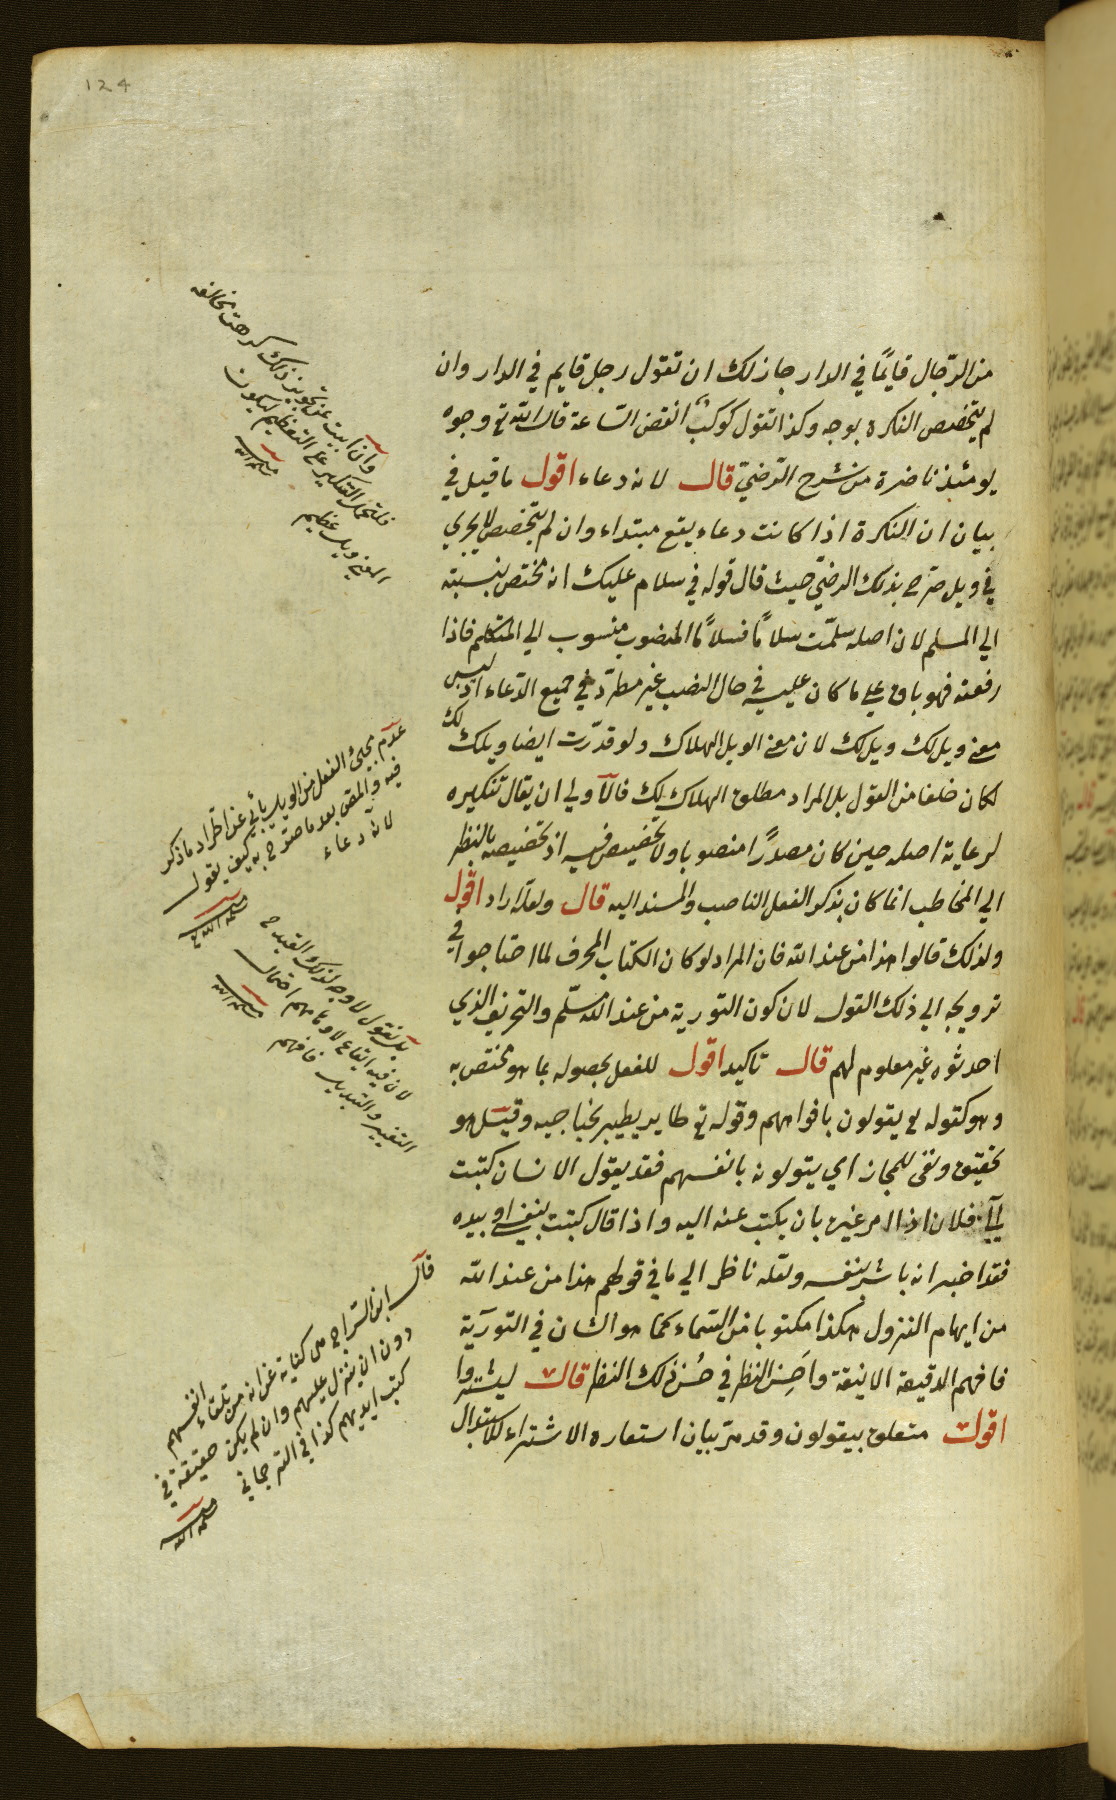 124
من الرجال قايمًا في الدار جاز لك ان تقول رجل قايم في الدار وان
لم يتخصص النكرة بوجه وكذا تقول كوكبٌ انقض الساعة قال الله تع وجوه
يومئذ ناضرة من شرح الرضيّ قال لانه دعاء اقول ما قيل في
بيان ان النكرة اذا كانت دعاء يقع مبتداء وان لم يتخصص لا يجري
في ويل صرّح بذلك الرضيّ حيث قال قوله في سلام عليك انه مختص بنسبته
الي المسلم لان اصله سلّمت سلامًا فسلامًا المنصوب منسوب الي المتكلم فاذا
رفعته فهو باق علي ما كان عليه في حال النصب غير مطرّد في جميع الدعاء اذ ليس
معني ويل لك ويل لك لان معني الويل الهلاك ولو قدّرت ايضا ويلك لك
لكان خلفا من القول بل المراد مطلق الهلاك لك فالاولي ان يقال تنكيره
لرعاية اصله حين كان مصدرًا منصوبا ولا تخصيص فيه اذ تخصيصه بالنظر
الي المخاطب انما كان بذكر الفعل الناصب والمسند اليه قال ولعله اراد اقول
ولذلك قالوا هذا من عند الله فان المراد لو كان الكتاب المحرف لما احتاجوا في
ترويجه الي ذلك القول لان كون التورية من عند الله مسلّم والتحريف الذي
احدثوه غير معلوم لهم قال تاكيد اقول للفعل بحصوله بما هو مختص به
وهو كقوله تع يقولون بافواههم وقوله تع طاير يطير بجناحيه وقيل هو
تحقيق ونفي للمجاز اي يقولونه بانفسهم فقد يقول الانسان كتبت
الي فلان اذا امر غيره بان يكتب عنه اليه واذا قال كتبت بنفسي او بيده
فقد اخبر انه باشر بنفسه ولعله ناظر الي ما في قولهم هذا من عند الله
من ايهام النزول هكذا مكتوبا من السماء كما هو الشان في التورية
فافهم الدقيقة الانيقة واَحسِن النظر في حُسْن ذلك النظر قال ليشتروا
اقول متعلق بيقولون وقد مرّ بيان استعاره الاشتراء للاستبدال
وان ابيت عن تجويز ذلك كرهت مخالفة
فلتحمل التنكير علي التعظيم ليكون
المعني ويل عظيم
منه سلمه الله
عدم مجيئ الفعل من الويل يأبي عن اطراد ما ذكر
فيه والمص بعد ما صرّح به كيف يقول
لانه دعاء
منه سلمه الله تع
بل نقول لا وجه لذلك القيد ح
لان فيه ايقاعا لاوهامهم احتمال
التغيير والتبديل فافهم
منه سلمه الله
قال ابن السراج هي كناية عن انه من تلقاء انفسهم
دون ان ينزل عليهم وان لم يكن حقيقة في
كتب ايديهم كذا في الترجماني
منه سلمه الله